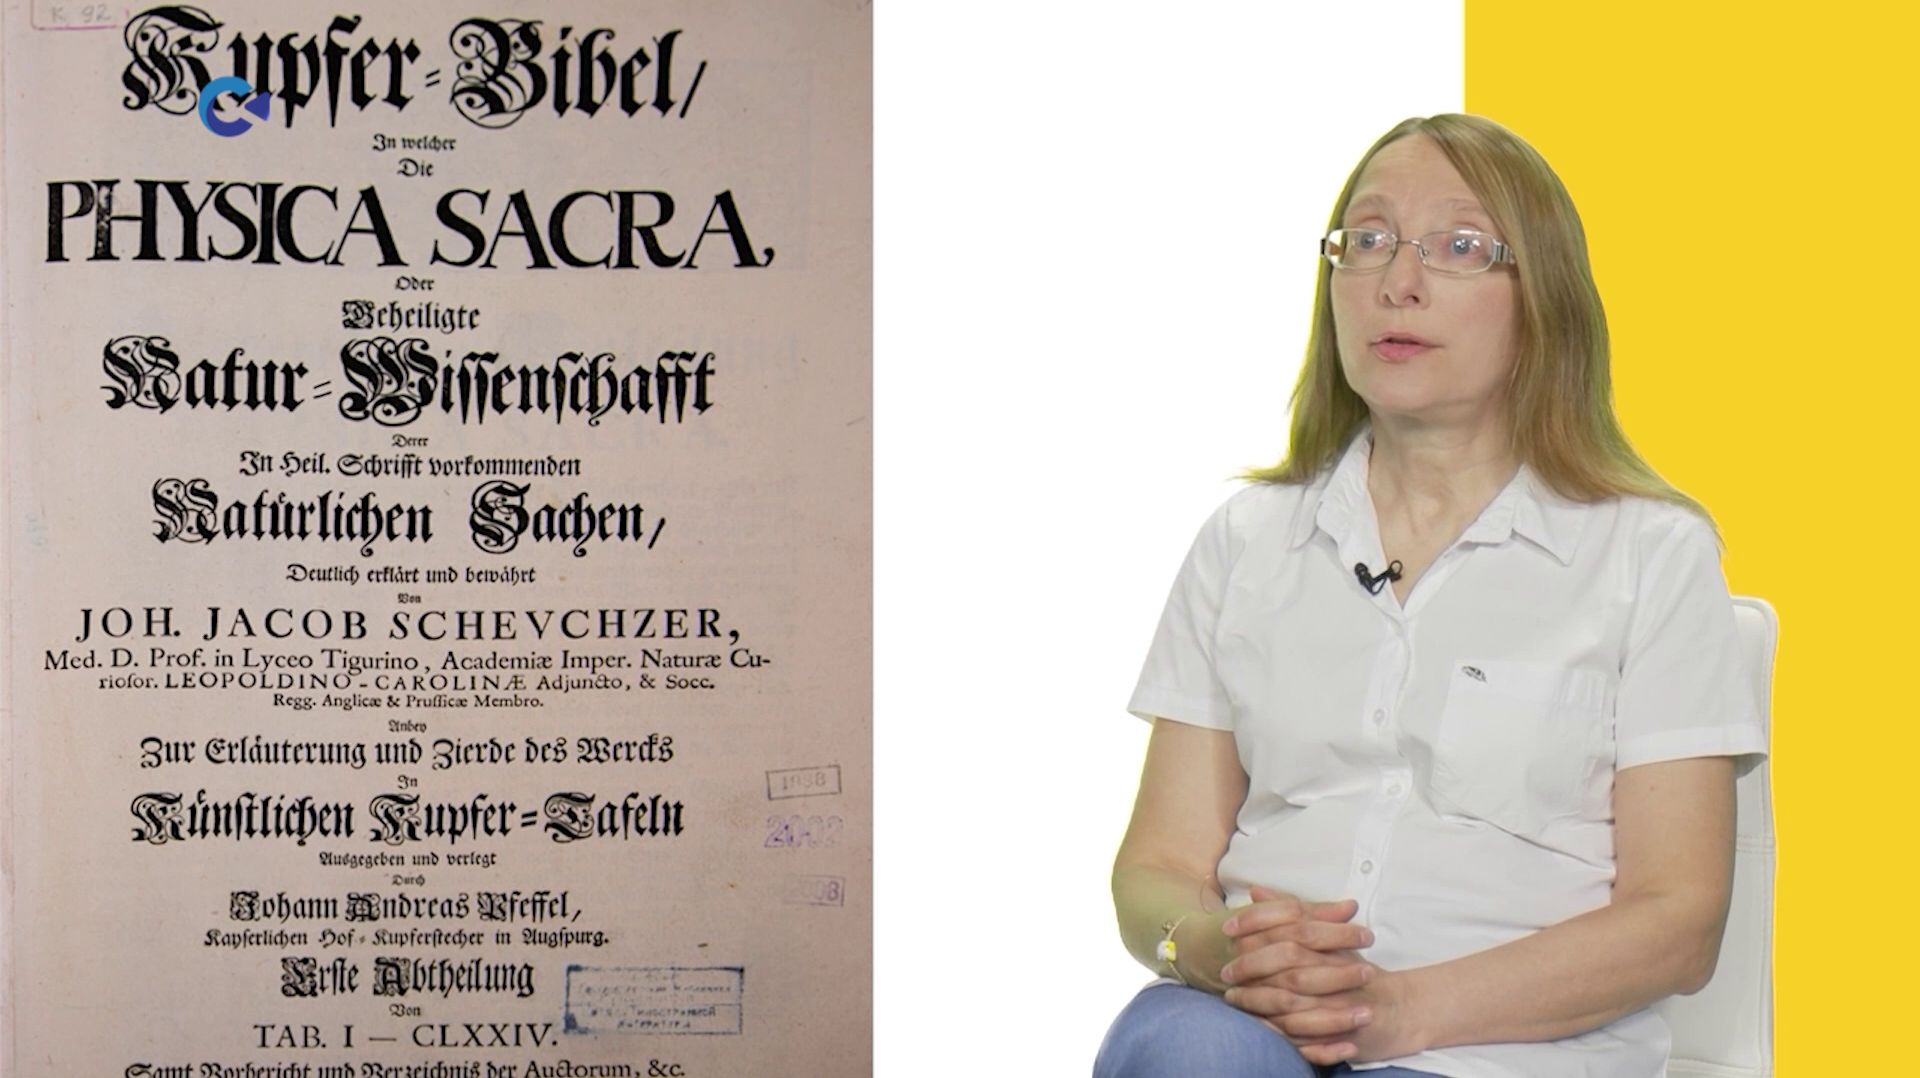 K. 92
Kupfer=Bibel/
In welcher
Die
PHYSICA SACRA,
Oder
Geheiligte
Natur=Wissenschafft
Derer
In Heil. Schrifft vorkommenden
Natürlichen Sachen/
Deutlich erklärt und bewährt
Von
JOH. JACOB SCHEVCHZER,
Med. D. Prof. in Lyceo Tigurino, Academiæ Imper. Naturæ Cu-
riosor. LEOPOLDINO-CAROLINÆ Adjuncto, & Socc.
Regg. Anglicæ & Prussicæ Membro.
Anbey
Zur Erläuterung und Zierde des Wercks
In
Künstlichen Kupfer=Tafeln
Ausgegeben und verlegt
Durch
Johann Andreas Pfeffel/
Kayserlichen Hof=Kupferstecher in Augspurg.
Erste Abtheilung
Von
TAB. I — CLXXIV.
Samt Vorbericht und Verzeichnis der Auctorum, &c.
1938
2002
2008